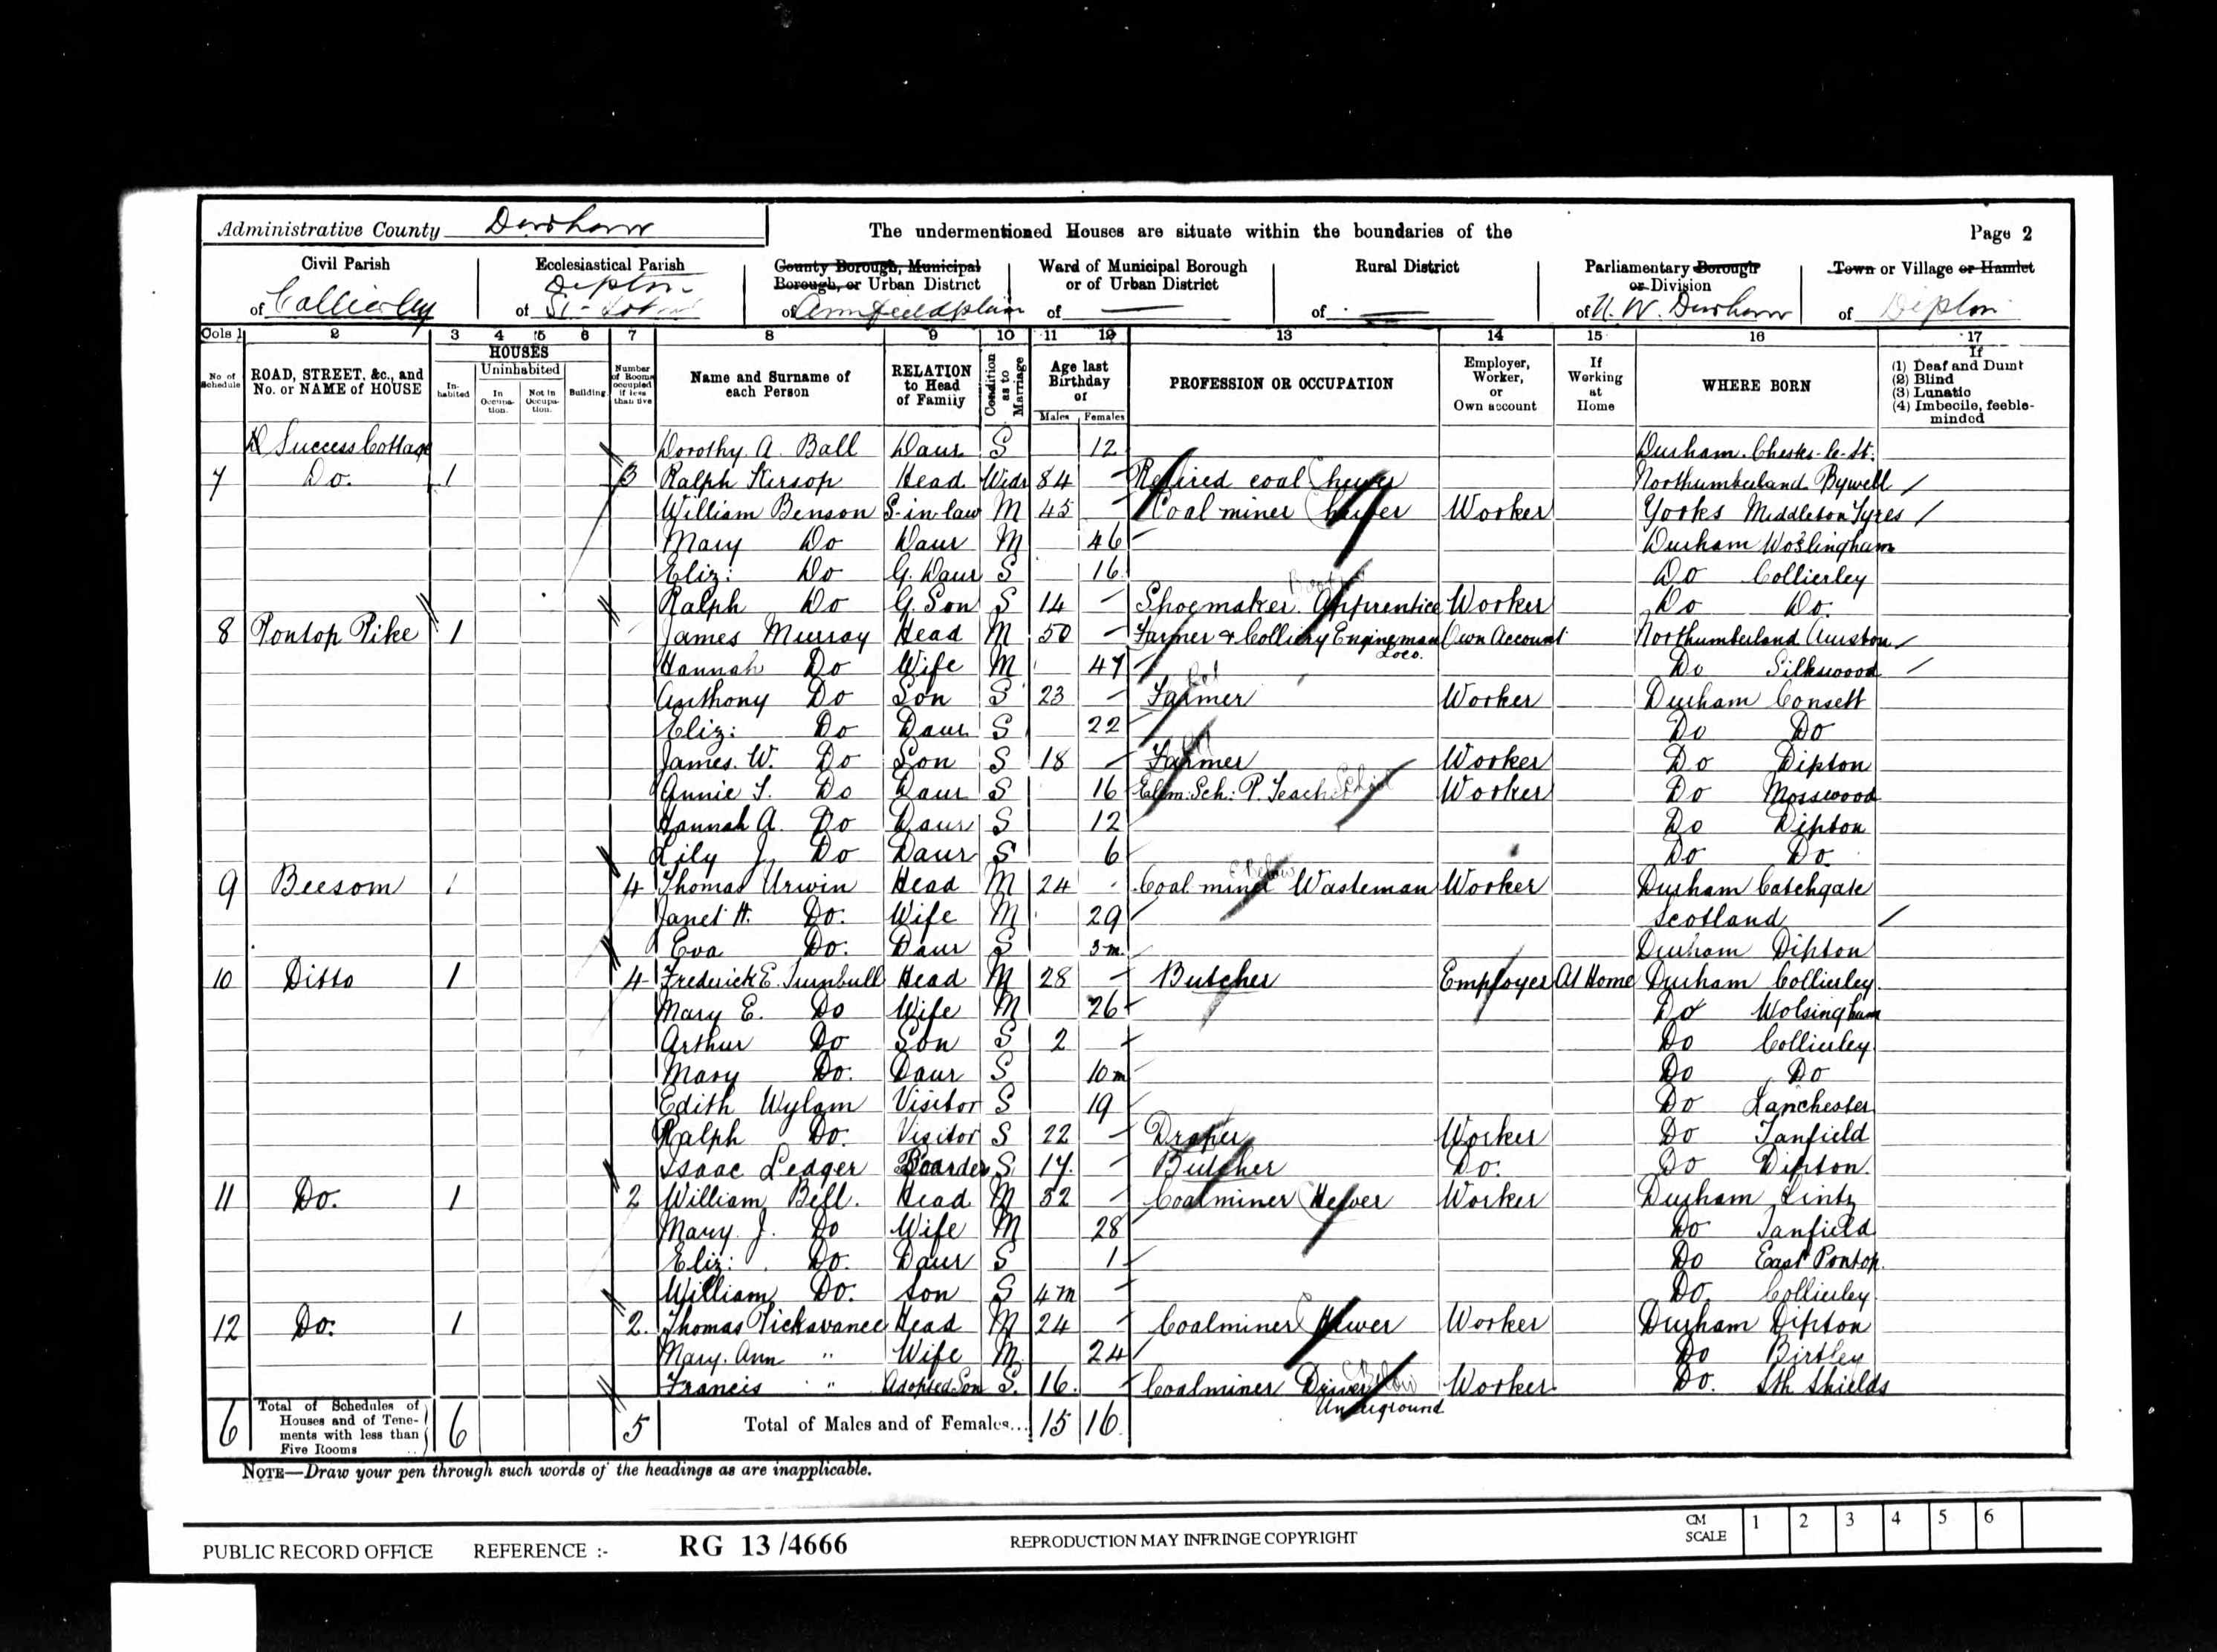 Administrative County Durham
The undermentioned Houses are situate within the boundaries of the
Page 2
Civil Parish of Collierley
Ecclesiastical Parish of Dipton St.
County Borough, Municipal Borough, or Urban District of Annfieldplain
Ward of Municipal Borough or of Urban District of
Rural District of
Parliamentary Borough or Division of N. W. Durham
Town or Village or Hamlet of Dipton
Cols 1 2 3 4 5 6 7 8 9 10 11 12 13 14 15 16 17
No of Schedule
ROAD, STREET, &c., and No. or NAME of HOUSE
HOUSES
In-habited
Uninhabited
In Occupa-tion.
Not in Occupa-tion.
Building
Number of Rooms occupied if less than five
Name and Surname of each Person
RELATION to Head of Family
Condition as to Marriage
Age last Birthday of
Males Females
PROFESSION OR OCCUPATION
Employer, Worker, or Own account
If Working at Home
WHERE BORN
If
(1) Deaf and Dumb
(2) Blind
(3) Lunatic
(4) Imbecile, feeble-minded
Success Cottage Dorothy A. Ball Daur S 12 Durham Chester-le-St:
7 Do. 1 3 Ralph Kirsop Head Widr 84 - Retired coal hewer Northumberland Bywell
William Benson S-in-law M 45 - Coal miner hewer Worker Yorks Middleton Tyres
Mary Do Daur M 46 Durham Woslingham
Eliz: Do G. Daur S 16 Do Collierley
Ralph Do G. Son S 14 - Shoemaker Apprentice Worker Do Do.
8 Pontop Pike 1 James Murray Head M 50 - Farmer & Colliery Engineman Loco. Own Account Northumberland
Hannah Do Wife M 47 Do Silkswood
Anthony Do Son S 23 - Farmer Worker Durham Consett
Eliz: Do Daur S 22 Do Do
James. W. Do Son S 18 - Farmer Worker Do Dipton
Annie Do Daur S 16 Elem: Sch: P. Teacher Worker Do Mosswood
Hannah A. Do Daur S 12 Do Dipton
Lily J. Do Daur S 6 Do Do.
9 Beesom 1 4 Thomas Urwin Head M 24 Coal mine Wasteman Worker Durham Catchgate
Janet H. Do. Wife M 29 Scotland
Eva Do. Daur S 3m. Durham Dipton
10 Ditto 1 4 Frederick E. Turnbull Head M 28 - Butcher Employer At Home Durham Collierley.
Mary E. Do Wife M 26 Do Wolsingham
Arthur Do Son S 2 Do Collierley
Mary Do. Daur S 10m Do Do
Edith Wylam Visitor S 19 Do Lanchester
Ralph Do. Visitor S 22 - Draper Worker Do Tanfield
Isaac Ledger Boarder S 17. - Butcher Do. Do Dipton.
11 Do. 1 2 William Bell. Head M 32 - Coalminer Hewer Worker Durham Lintz
Mary. J. Do Wife M 28 Do Tanfield
Eliz: Do. Daur S 1 Do East Pontop.
William Do. Son S 4m - Do. Collierley
12 Do. 1 2. Thomas Pickavance Head M 24 - Coalminer Hewer Worker Durham Dipton
Mary. Ann " Wife M. 24 Do Birtley
Francis " Adopted Son S. 16. - Coalminer Driver Underground Worker. Do. Sth Shields
6 Total of Schedules of Houses and of Tenements with less than Five Rooms 6 5 Total of Males and of Females... 15 16
NOTE—Draw your pen through such words of the headings as are inapplicable.
PUBLIC RECORD OFFICE REFERENCE :- RG 13 /4666 REPRODUCTION MAY INFRINGE COPYRIGHT CM SCALE 1 2 3 4 5 6